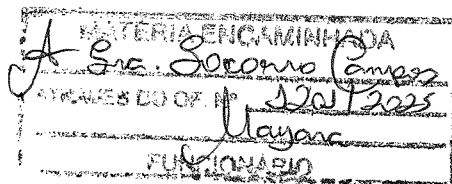 MATÉRIA ENCAMINHADA
A Sra. Socorro Campos
ATRAVÉS DO OF. Nº 1201/2025
Mayara
FUNCIONÁRIO